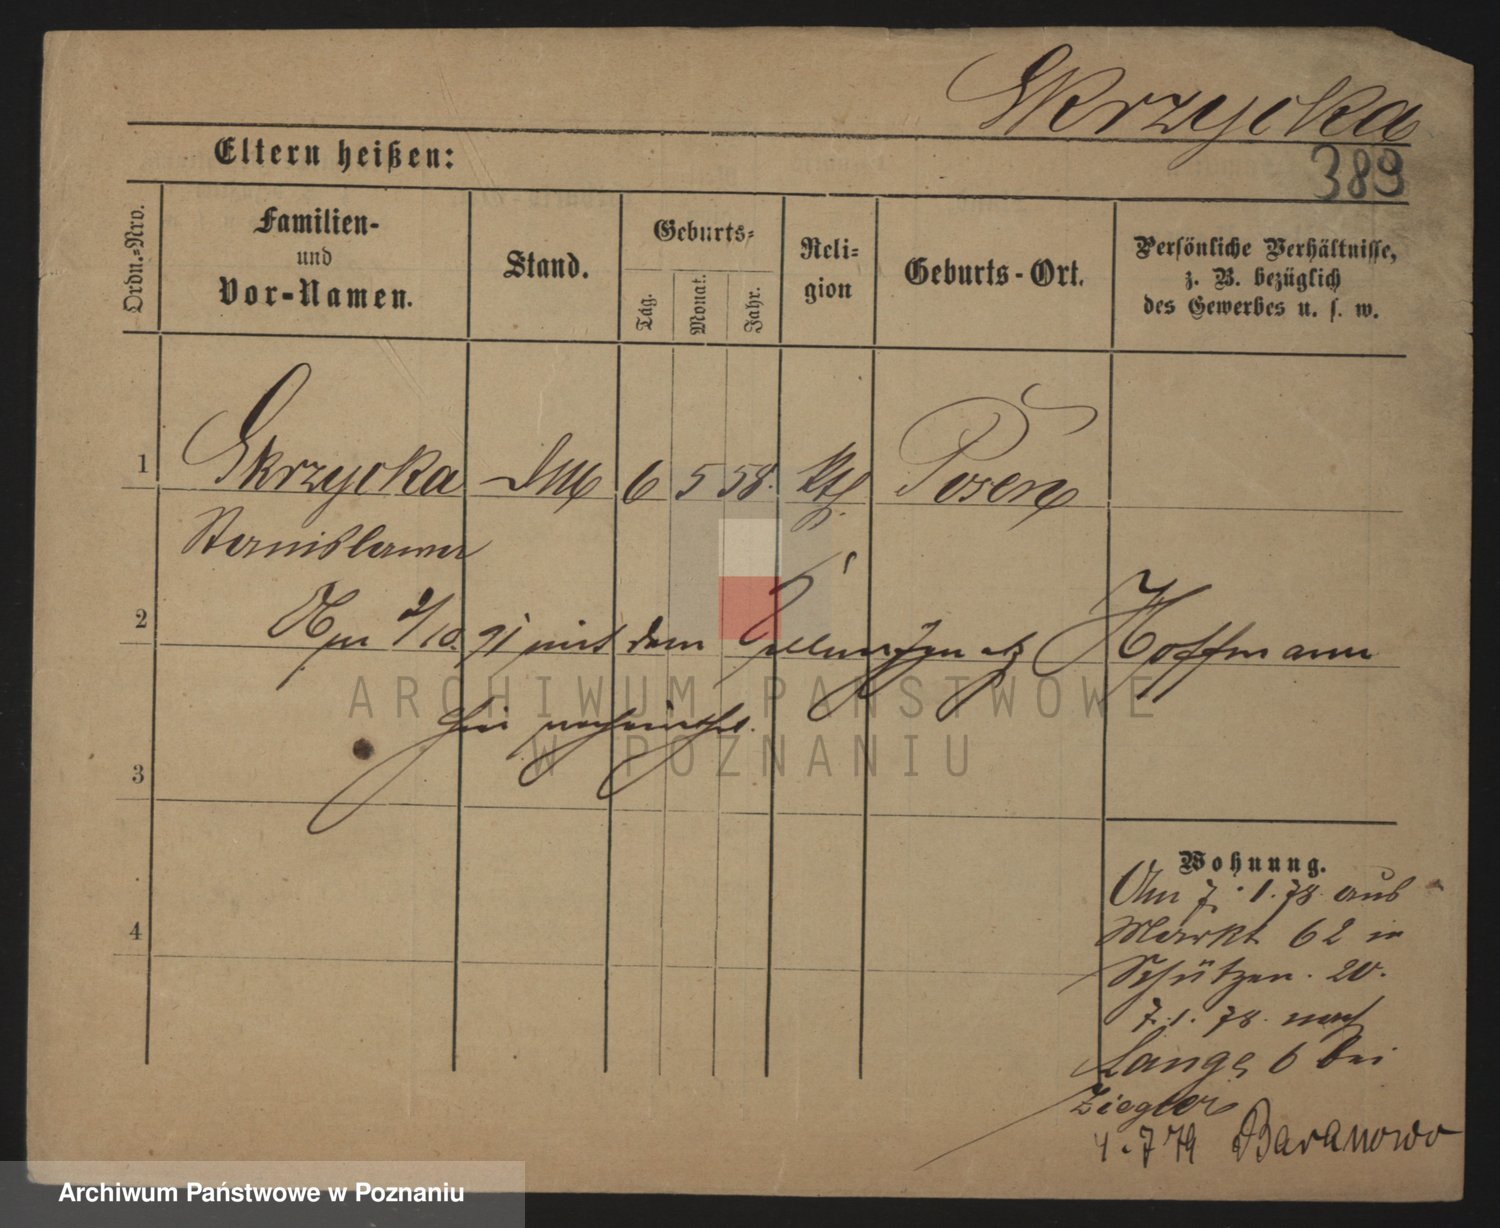 Skrzycka
389
Eltern heißen:
Ordn.-Nro.
Familien-
und
Vor-Namen.
Stand.
Geburts-
Tag.
Monat.
Jahr.
Reli-
gion
Geburts-Ort.
Persönliche Verhältnisse,
z. B. bezüglich
des Gewerbes u. s. w.
1 Skrzycka 6 5 58. Kth. Posen
Stanislawa
2 10. 91 mit dem Hoffmann
hier
3
4
Wohnung.
Am 7. 1. 78. aus
Markt 62 in
Schützen. 20.
7. 1. 78. nach
Lange 6 bei
Ziegler
4. 7 79 Baranowo
ARCHIWUM PAŃSTWOWE
W POZNANIU
Archiwum Państwowe w Poznaniu